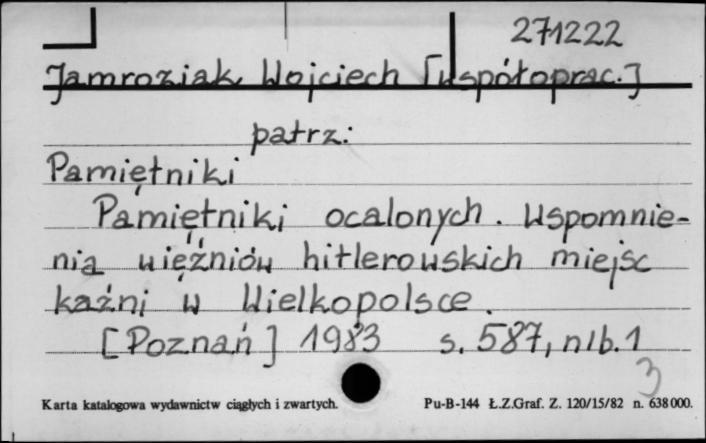 271222
Jamroziak Wojciech [współoprac.]
patrz:
Pamiętniki
Pamiętniki ocalonych. Wspomnie-
nia więźniów hitlerowskich miejsc
kaźni w Wielkopolsce.
[Poznań] 1983 s. 587, nlb. 1
3
Karta katalogowa wydawnictw ciągłych i zwartych. Pu-B-144 Ł.Z.Graf. Z. 120/15/82 n. 638000.